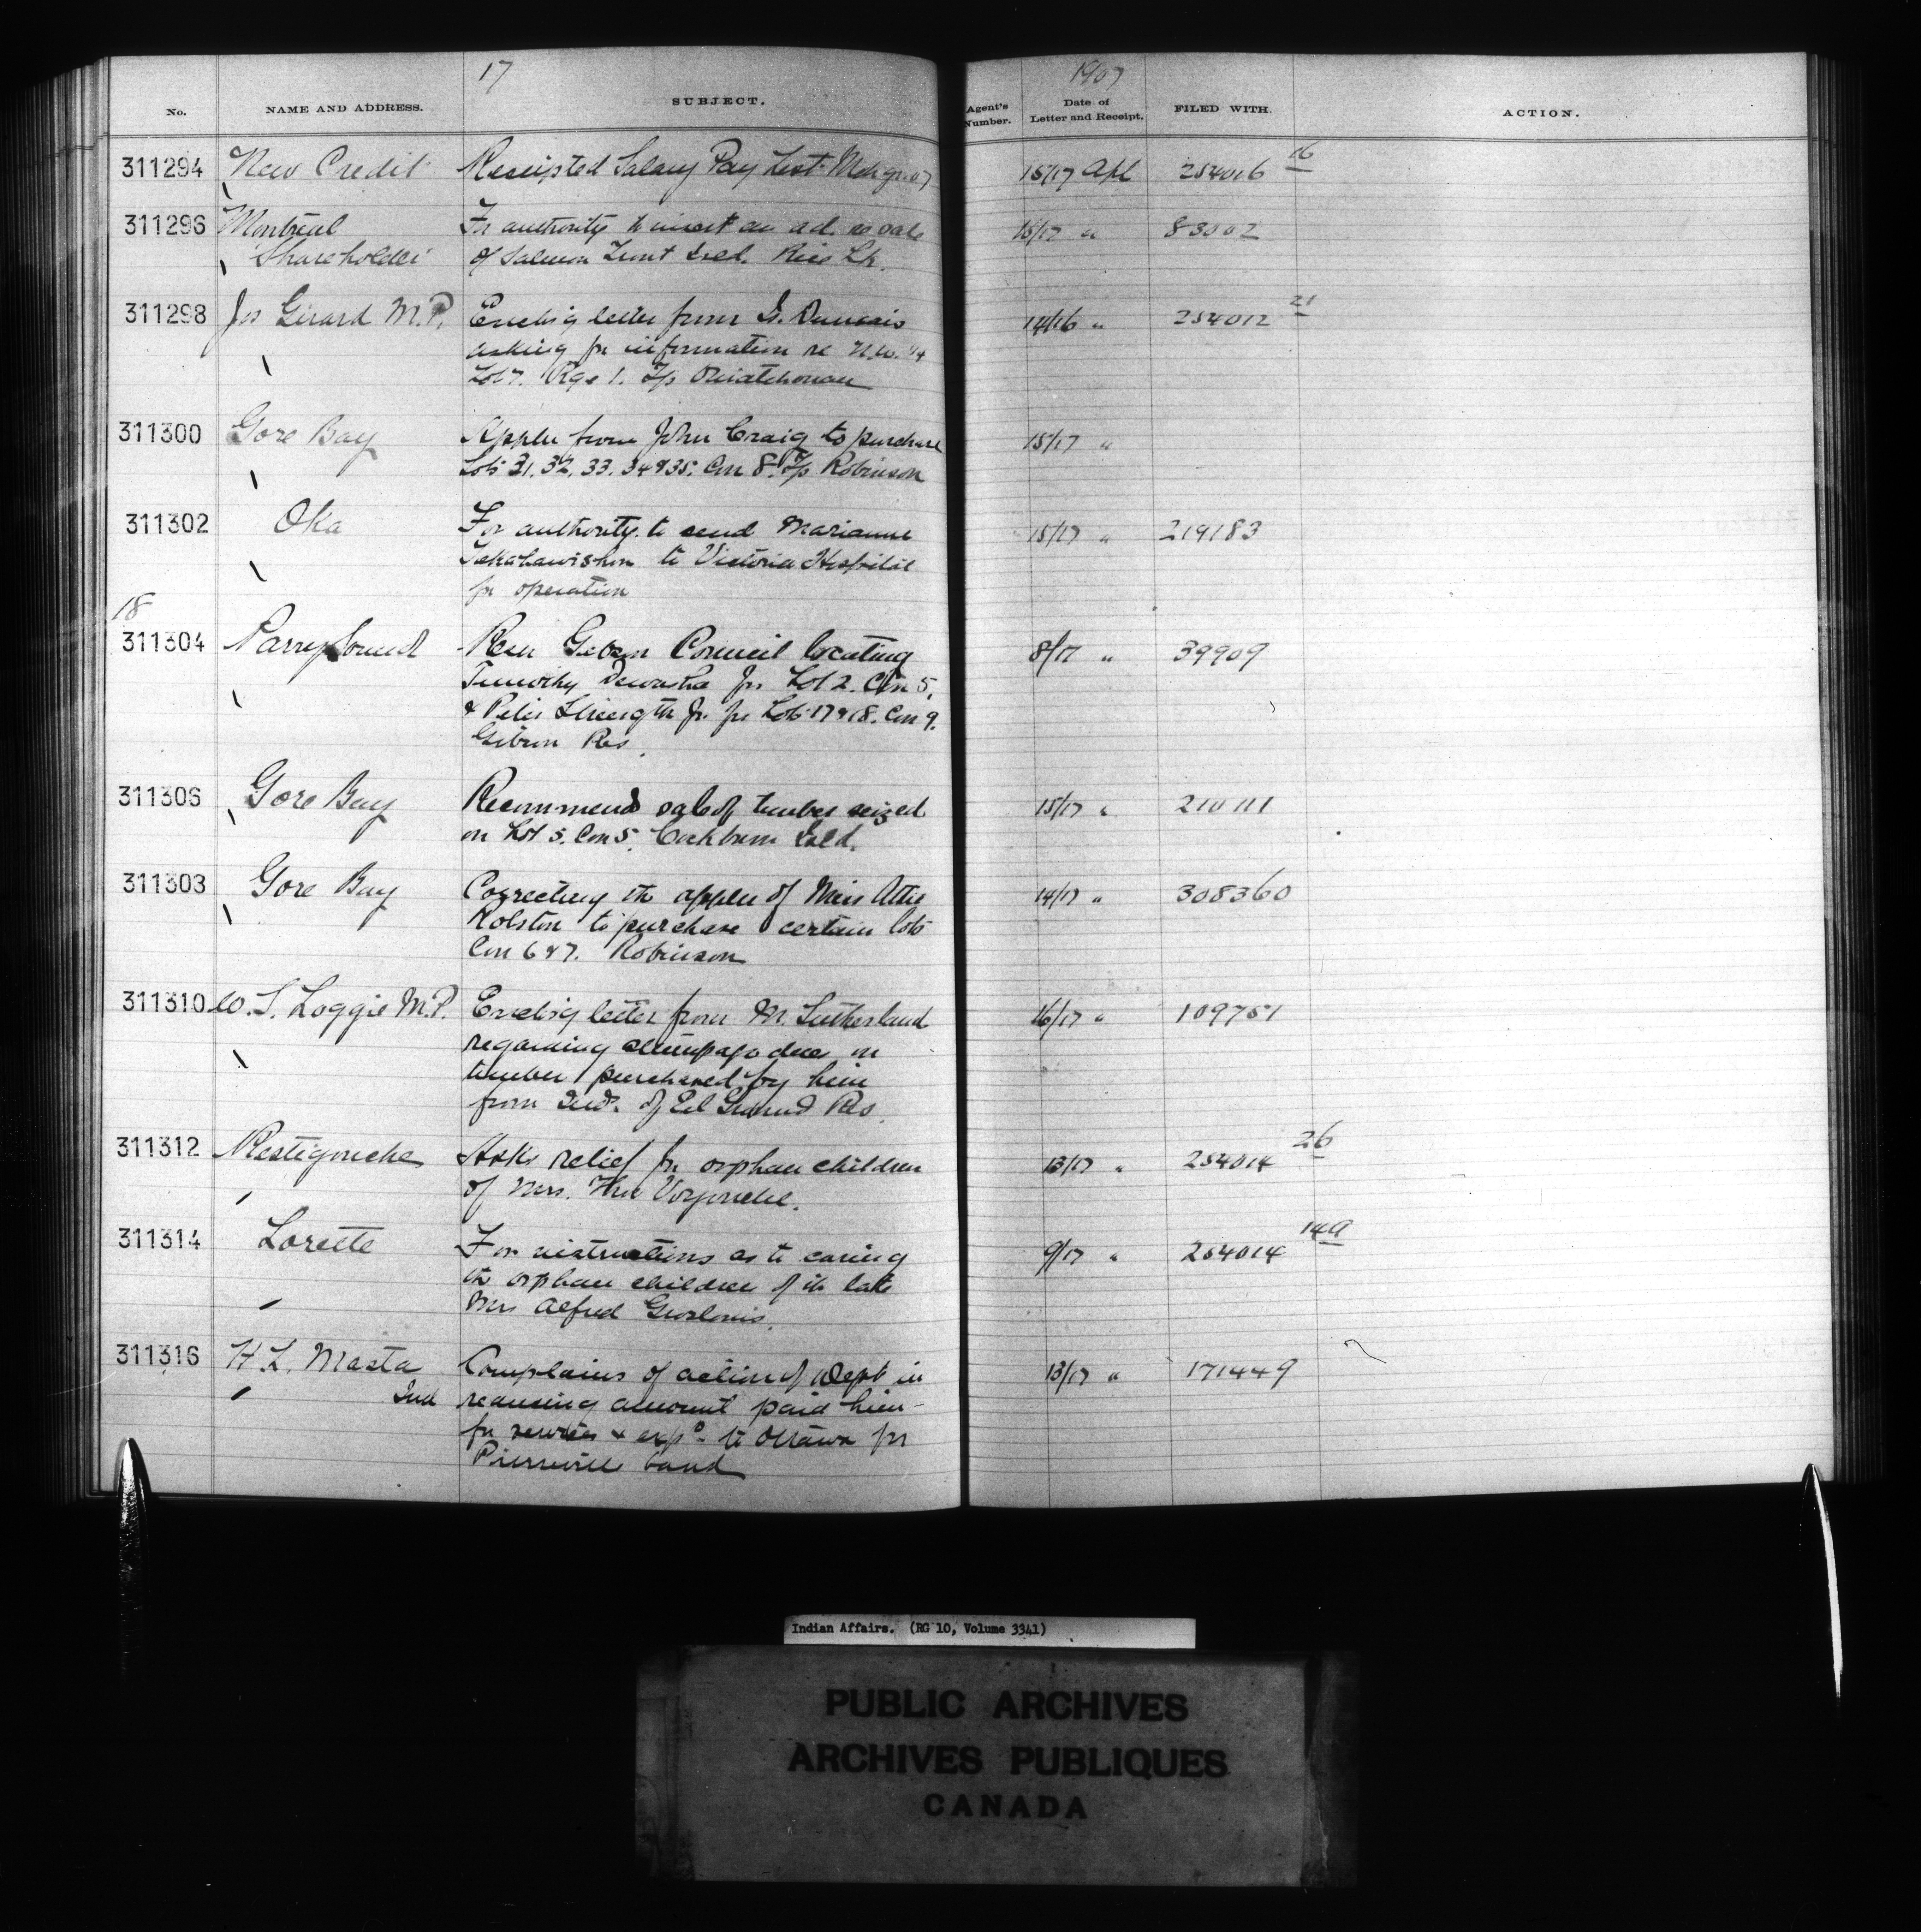 17
1907
No. NAME AND ADDRESS. SUBJECT. Agent's Number. Date of Letter and Receipt. FILED WITH. ACTION.
311294 New Credit Receipted Salary Pay List Mch qr. 07 15/17 Apl 254016 16
311296 Montreal For authority to insert an ad. re sale 16/17 " 83002
Shareholder of Salmon Trout Isld. Rice Lk.
311298 Jos Girard M.P. Enclsg letter from 14/16 " 254012 21
asking for information re N.W. 1/4
Lot 7. Rge 1. T/p Ouiatchouan
311300 Gore Bay Appln from John Craig to purchase 15/17 "
Lots 31. 32. 33. 34 & 35. Con 8. T/p Robinson
311302 Oka For authority to send Marianne 15/17 " 219183
to Victoria Hospital
for operation
18
311304 Parry Sound Resn Gibson Council locating 8/17 " 39909
Timothy for Lot 2. Con 5.
& Peter Strength Jr. for Lots 17 & 18. Con 9.
Gibson Res.
311306 Gore Bay Recommends sale of timber seized 15/17 " 210111
on Lot 5. Con 5. Cockburn Isld.
311308 Gore Bay Correcting the appln of Miss Attie 14/17 " 308360
Rolston to purchase certain lots
Con 6 & 7. Robinson
311310 W. S. Loggie M.P. Enclsg letter from M. Sutherland 16/17 " 109751
regarding stumpage dues on
timber purchased by him
from Inds. of Eel Ground Res.
311312 Restigouche Asks relief for orphan children 13/17 " 254014 26
of Mrs.
311314 Lorette For instructions as to caring 9/17 " 254014 14a
the orphan children of the late
Mrs Alfred Groslouis.
311316 H. L. Masta Complains of action of Dept in 13/17 " 171449
Ind reducing amount paid him
for services & exps. to Ottawa for
Pierreville band
Indian Affairs. (RG 10, Volume 3341)
PUBLIC ARCHIVES
ARCHIVES PUBLIQUES
CANADA